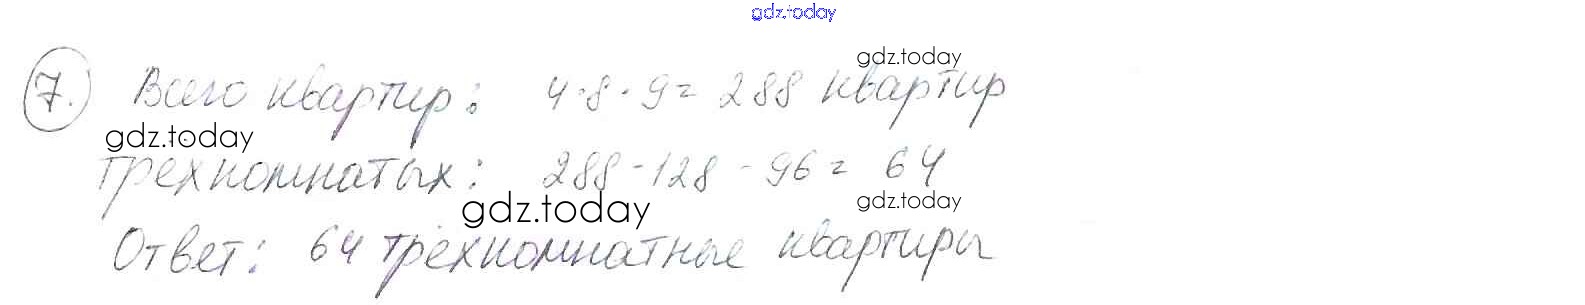 gdz.today
gdz.today
7. Всего квартир: 4·8·9= 288 квартир
gdz.today
трехкомнатых: 288-128-96= 64
gdz.today gdz.today
Ответ: 64 трехкомнатные квартиры